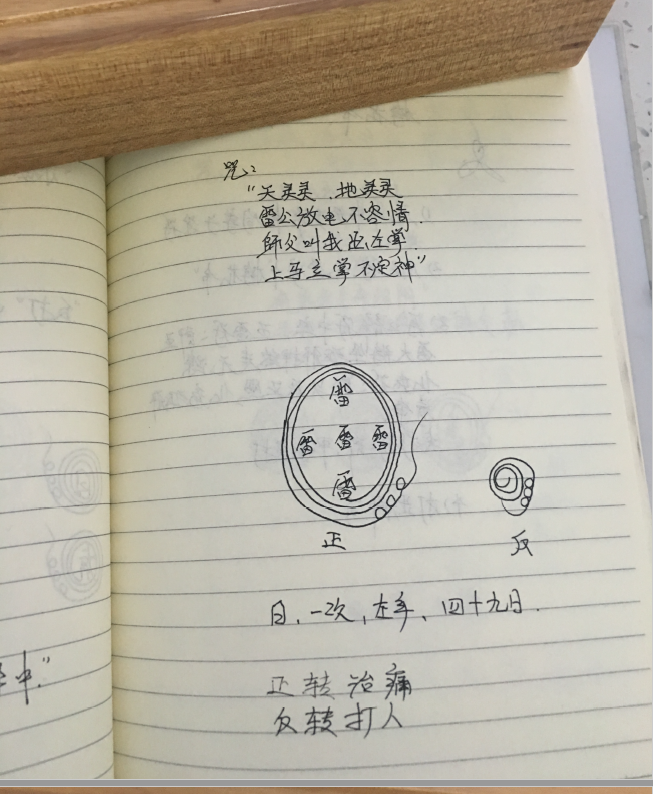 咒：
"天灵灵．地灵灵
雷公放电不容情．
师父叫我	左掌
上马立掌不定神"
雷
雷 雷 雷
雷
正
反
日、一次，左手、四十九日．
正转治痛
反转打人
中."